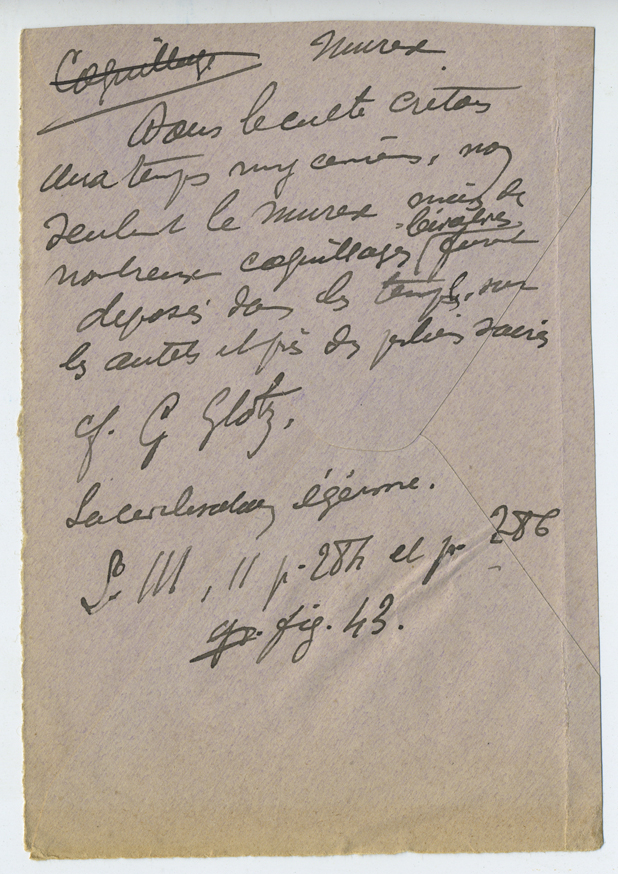 Coquillage Murex
Dans le culte crétois
aux temps mycéniens, non
seulement le murex mais de
nombreux coquillages bivalves furent
déposés dans les temples, sur
les autels et près des piliers sacrés
cf. G Glotz.
La civilisation égéenne.
L. III, II p. 284 et p. 286
fig. 43.